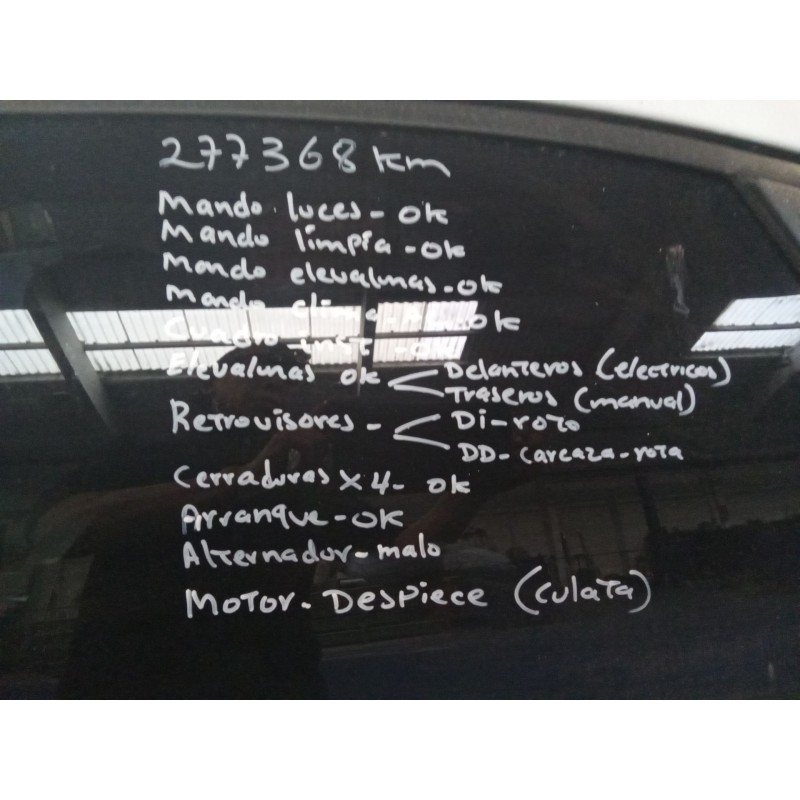 277368 km
Mando luces - ok
Mando limpia - ok
Mando elevalunas - ok
Mando clima - ok
Cuadro inst -
Elevalunas ok < Delanteros (electricos)
Traseros (manual)
Retrovisores - < Di - roto
DD - carcaza - rota
Cerraduras x 4 - ok
Arranque - OK
Alternador - malo
Motor - Despiece (culata)